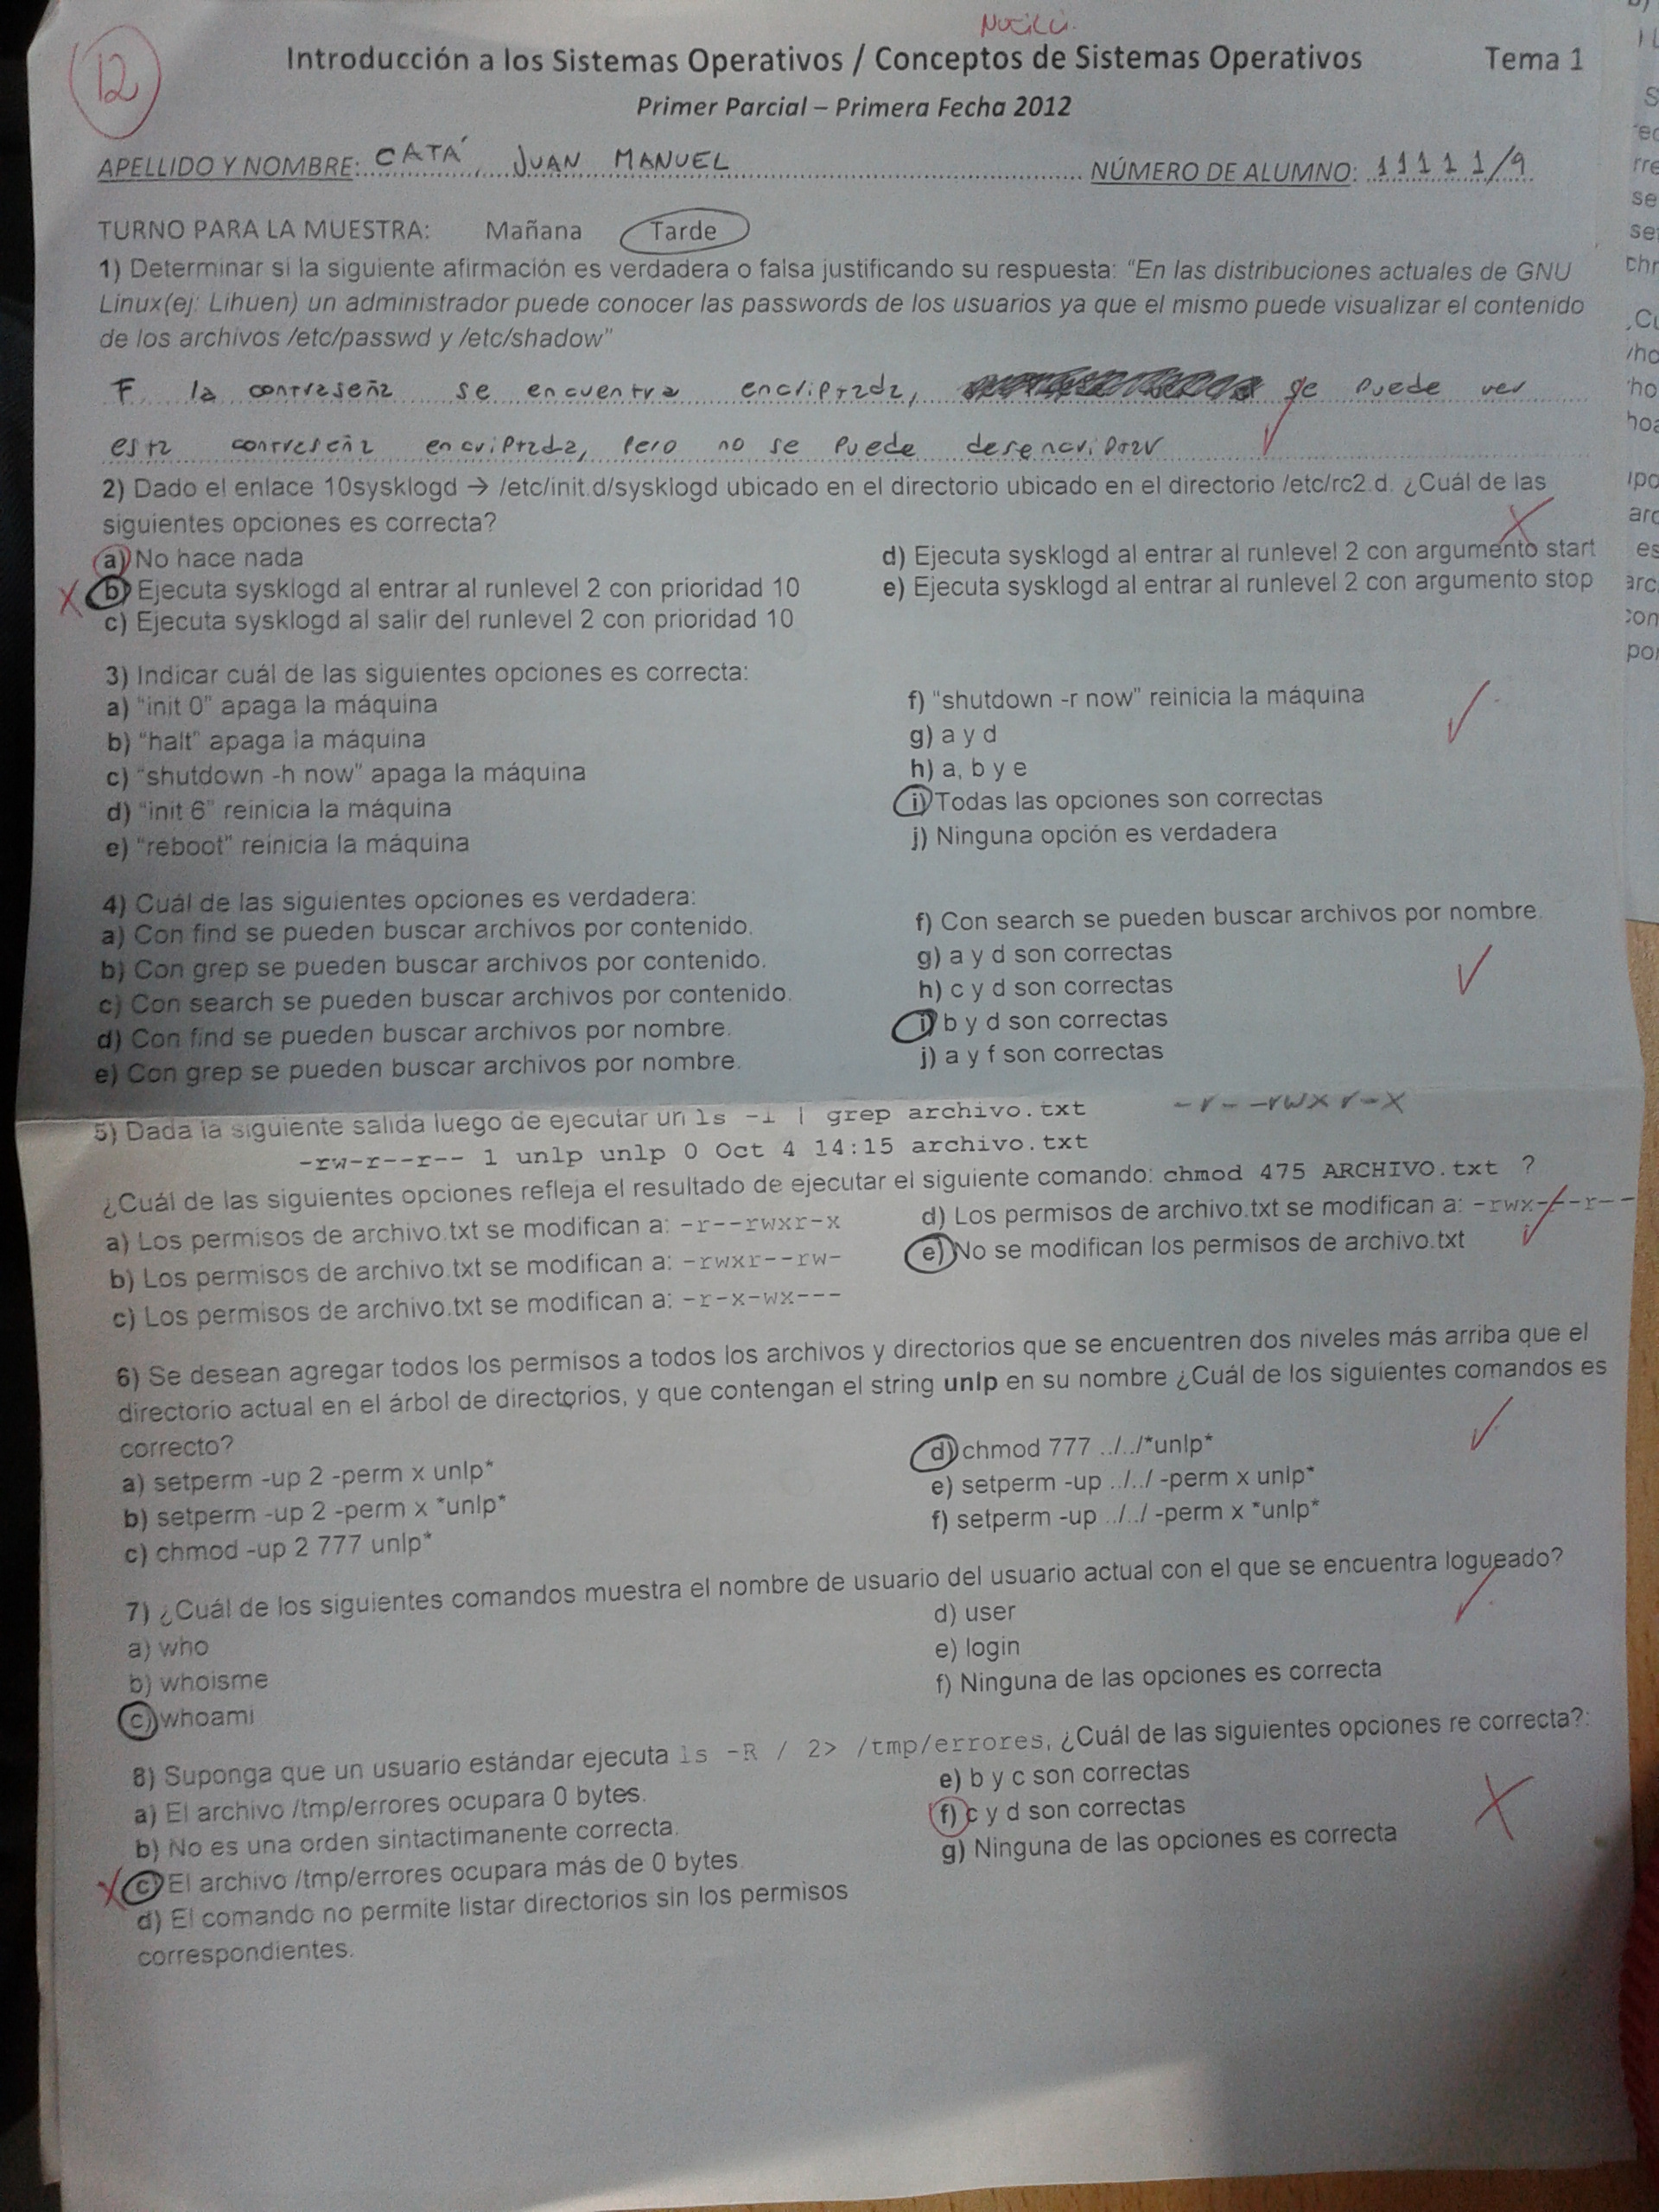 12
Introducción a los Sistemas Operativos / Conceptos de Sistemas Operativos Tema 1
Primer Parcial – Primera Fecha 2012
APELLIDO Y NOMBRE: CATÁ, JUAN MANUEL NÚMERO DE ALUMNO: 11111/9
TURNO PARA LA MUESTRA: Mañana Tarde
1) Determinar si la siguiente afirmación es verdadera o falsa justificando su respuesta: "En las distribuciones actuales de GNU
Linux(ej: Lihuen) un administrador puede conocer las passwords de los usuarios ya que el mismo puede visualizar el contenido
de los archivos /etc/passwd y /etc/shadow"
F. la contraseña se encuentra encriptada, se puede ver
esta contraseña encriptada, pero no se puede desencriptar
2) Dado el enlace 10sysklogd → /etc/init.d/sysklogd ubicado en el directorio ubicado en el directorio /etc/rc2.d. ¿Cuál de las
siguientes opciones es correcta?
a) No hace nada
b) Ejecuta sysklogd al entrar al runlevel 2 con prioridad 10
c) Ejecuta sysklogd al salir del runlevel 2 con prioridad 10
d) Ejecuta sysklogd al entrar al runlevel 2 con argumento start
e) Ejecuta sysklogd al entrar al runlevel 2 con argumento stop
3) Indicar cuál de las siguientes opciones es correcta:
a) "init 0" apaga la máquina
b) "halt" apaga la máquina
c) "shutdown -h now" apaga la máquina
d) "init 6" reinicia la máquina
e) "reboot" reinicia la máquina
f) "shutdown -r now" reinicia la máquina
g) a y d
h) a, b y e
i) Todas las opciones son correctas
j) Ninguna opción es verdadera
4) Cuál de las siguientes opciones es verdadera:
a) Con find se pueden buscar archivos por contenido.
b) Con grep se pueden buscar archivos por contenido.
c) Con search se pueden buscar archivos por contenido.
d) Con find se pueden buscar archivos por nombre.
e) Con grep se pueden buscar archivos por nombre.
f) Con search se pueden buscar archivos por nombre.
g) a y d son correctas
h) c y d son correctas
i) b y d son correctas
j) a y f son correctas
5) Dada la siguiente salida luego de ejecutar un ls -l | grep archivo.txt
-r--rwxr-x
-rw-r--r-- 1 unlp unlp 0 Oct 4 14:15 archivo.txt
¿Cuál de las siguientes opciones refleja el resultado de ejecutar el siguiente comando: chmod 475 ARCHIVO.txt ?
a) Los permisos de archivo.txt se modifican a: -r--rwxr-x
b) Los permisos de archivo.txt se modifican a: -rwxr--rw-
c) Los permisos de archivo.txt se modifican a: -r-x-wx---
d) Los permisos de archivo.txt se modifican a: -rwx-r--r--
e) No se modifican los permisos de archivo.txt
6) Se desean agregar todos los permisos a todos los archivos y directorios que se encuentren dos niveles más arriba que el
directorio actual en el árbol de directorios, y que contengan el string unlp en su nombre ¿Cuál de los siguientes comandos es
correcto?
a) setperm -up 2 -perm x unlp*
b) setperm -up 2 -perm x *unlp*
c) chmod -up 2 777 unlp*
d) chmod 777 ../../*unlp*
e) setperm -up ../../ -perm x unlp*
f) setperm -up ../../ -perm x *unlp*
7) ¿Cuál de los siguientes comandos muestra el nombre de usuario del usuario actual con el que se encuentra logueado?
a) who
b) whoisme
c) whoami
d) user
e) login
f) Ninguna de las opciones es correcta
8) Suponga que un usuario estándar ejecuta ls -R / 2> /tmp/errores, ¿Cuál de las siguientes opciones re correcta?:
a) El archivo /tmp/errores ocupara 0 bytes.
b) No es una orden sintactimanente correcta.
c) El archivo /tmp/errores ocupara más de 0 bytes.
d) El comando no permite listar directorios sin los permisos
correspondientes.
e) b y c son correctas
f) c y d son correctas
g) Ninguna de las opciones es correcta